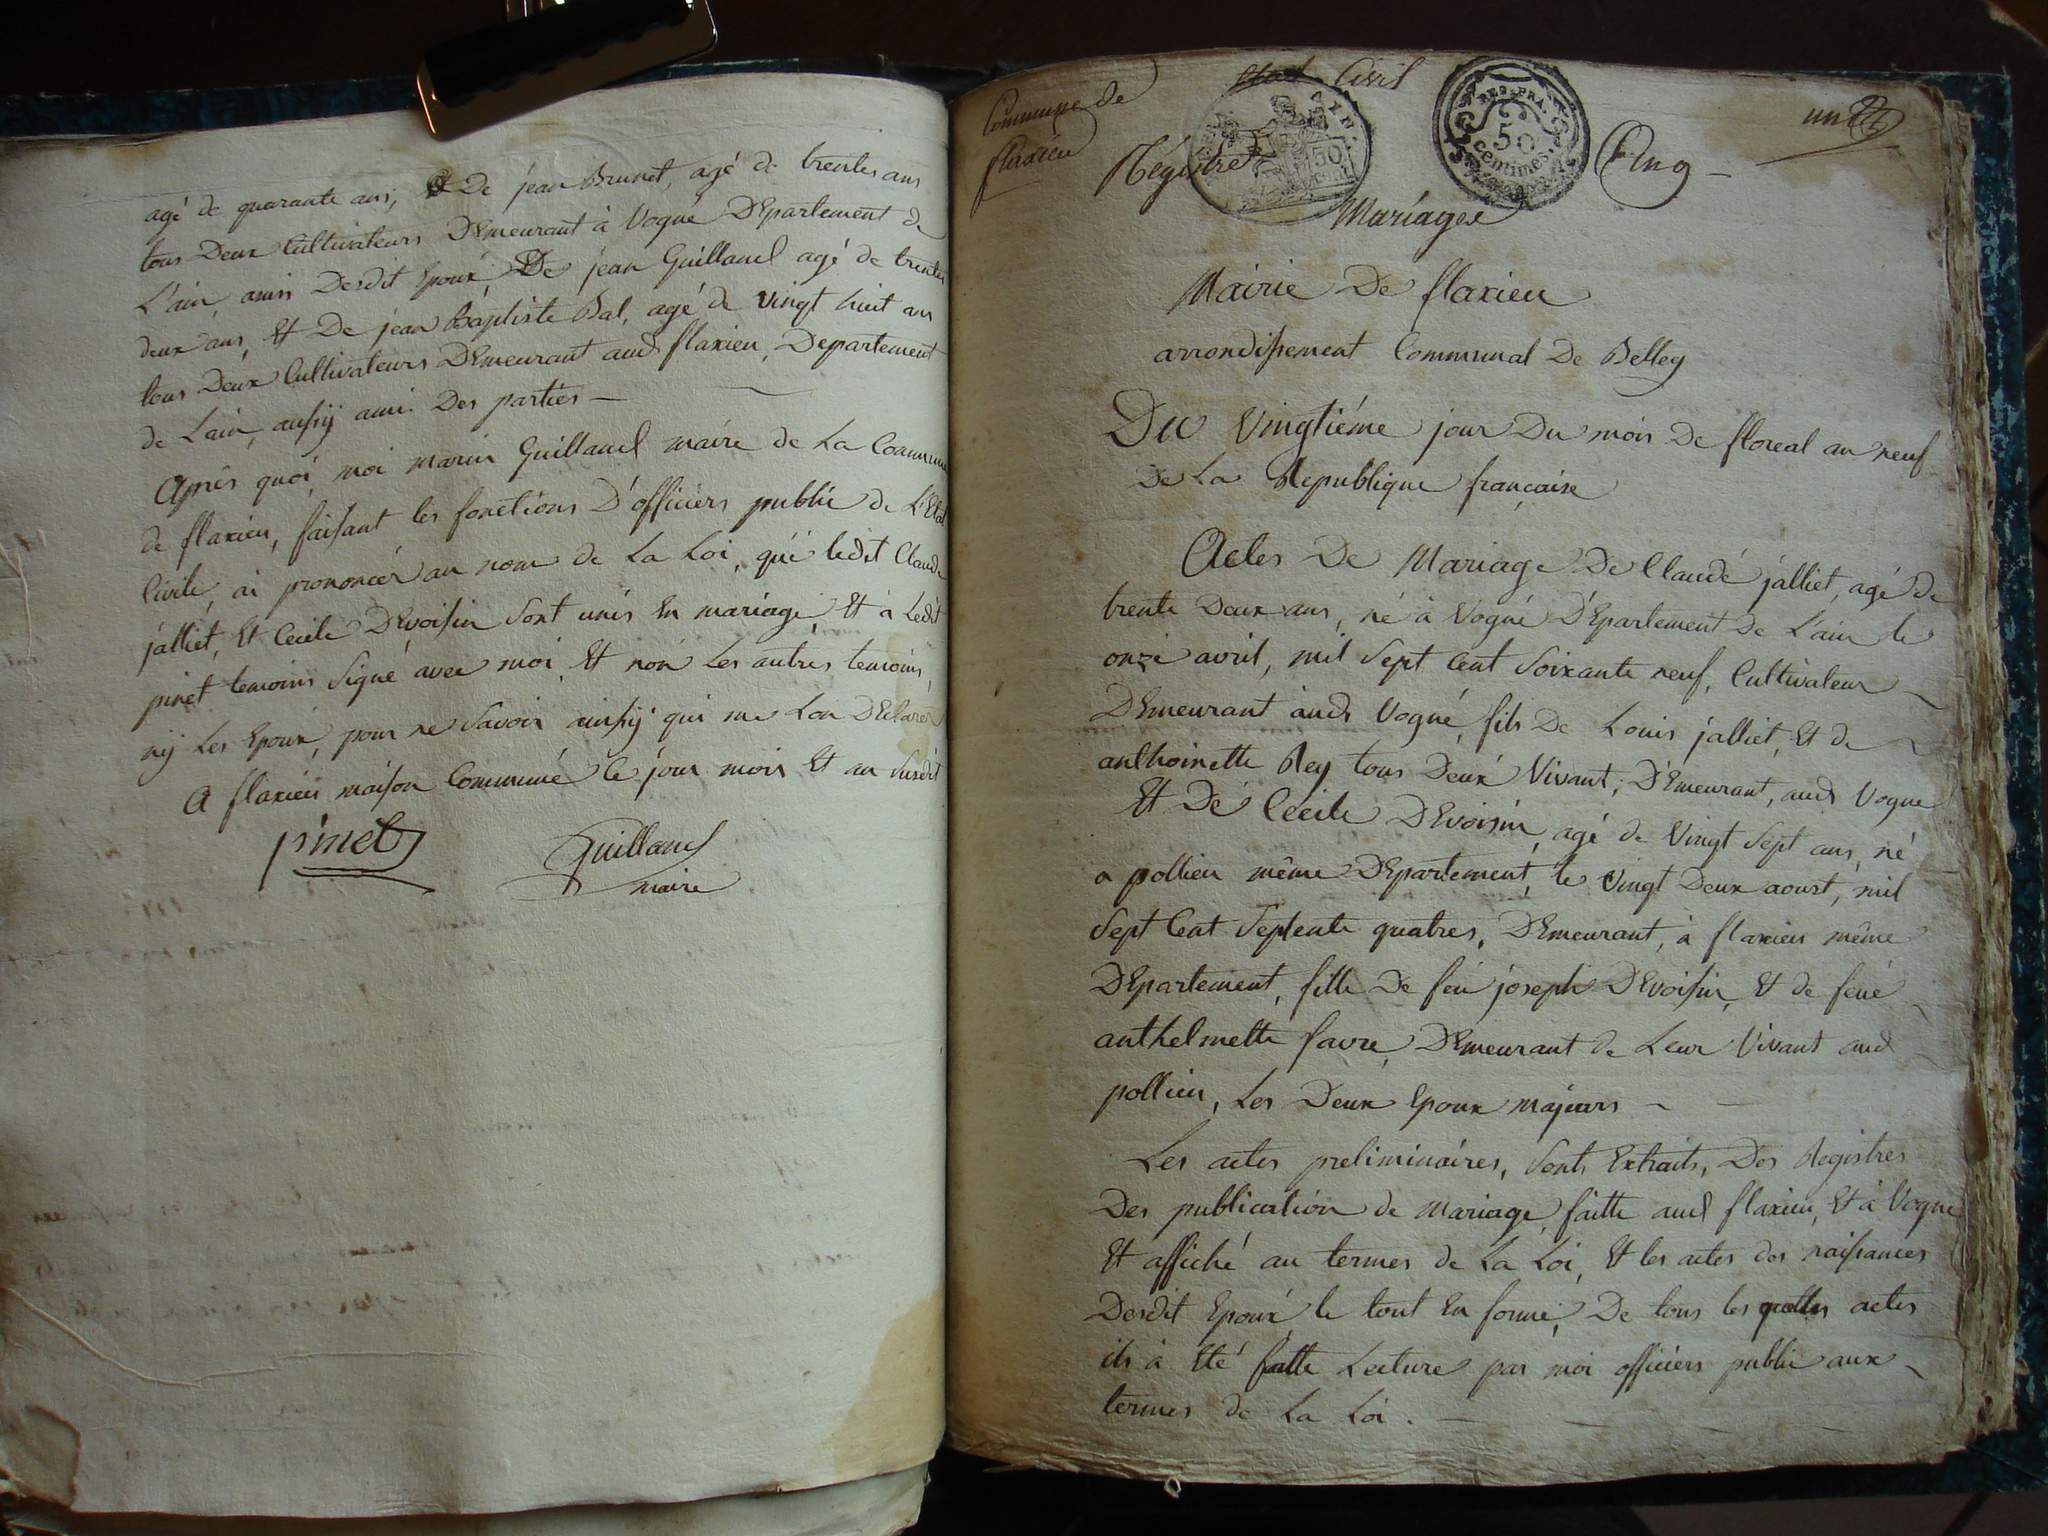 agé de quarante ans, De jean Brunet, agé de trentes ans
tous Deux Cultivateurs DEmeurant à Vogné DEpartement de
L'ain, amis Desdit Epoux, De jean Guilland agé de trentes
deux ans, Et De jean Baptiste Bal, agé de vingt huit ans
tous Deux Cultivateurs DEmeurant aud flaxieu, Departement
de Lain, aussÿ ami Des partiés —
Aprés quoi, moi marin Guilland maire de La Commune
de flaxieu, faisant les fonctions D'officiers public de L'Etat
Civile, ai prononcér au nom de La Loi, qué ledit Claude
jalliet, Et Cecile DEvoisin sont unis En mariage, Et à Ledit
pinet temoins Signé avec moi, Et non Les autres temoins,
nÿ Les Epoux, pour ne Savoir ainsÿ qui me Lon DEclarer
A flaxieu maison Communé le jour mois Et an Susdit
pinet
Guilland
maire
Commune de
flaxieu
Etat Civil
Régistre
50
REG. PRA.
50
centimes.
Cinq —
un
Mariages
Mairie De flaxieu
arrondissement Communal De Belley
Du Vingtiéme jour Du mois De floreal an neuf
De La Republique française
Actes De Mariage De Claudé jalliet, agé De
trente Deux ans, né à Vogné D'Epartement De L'ain le
onze avril, mil Sept Cent Soixante neuf, Cultivateur
DEmeurant audt Vogné, fils De Louis jalliet, Et de
anthoinette Rey tous Deux Vivant, D'Emeurant, audt Vogne
Et Dé Cécile DEvoisin, agé de Vingt Sept ans, né
a pollieu même DEpartement, le Vingt Deux aoust, mil
Sept Cent Septente quatres, DEmeurant, à flaxieu même
DEpartement, fille De feu joseph DEvoisin, Et de feue
anthelmette favre, DEmeurant de Leur Vivant aud
pollieu, Les Deux Epoux majeurs —
Les actes preliminaires, Sont Extraits, Des Registres
Des publication de mariage, faitte aud flaxieu, Et à Vogne
Et affiché au termes de La Loi, Et les actes des naissances
Desdit Epoux, le tout En forme, De tous les quelles actes
ils à Eté faitte Lecture par moi officiers public aux
termes de La Loi. —